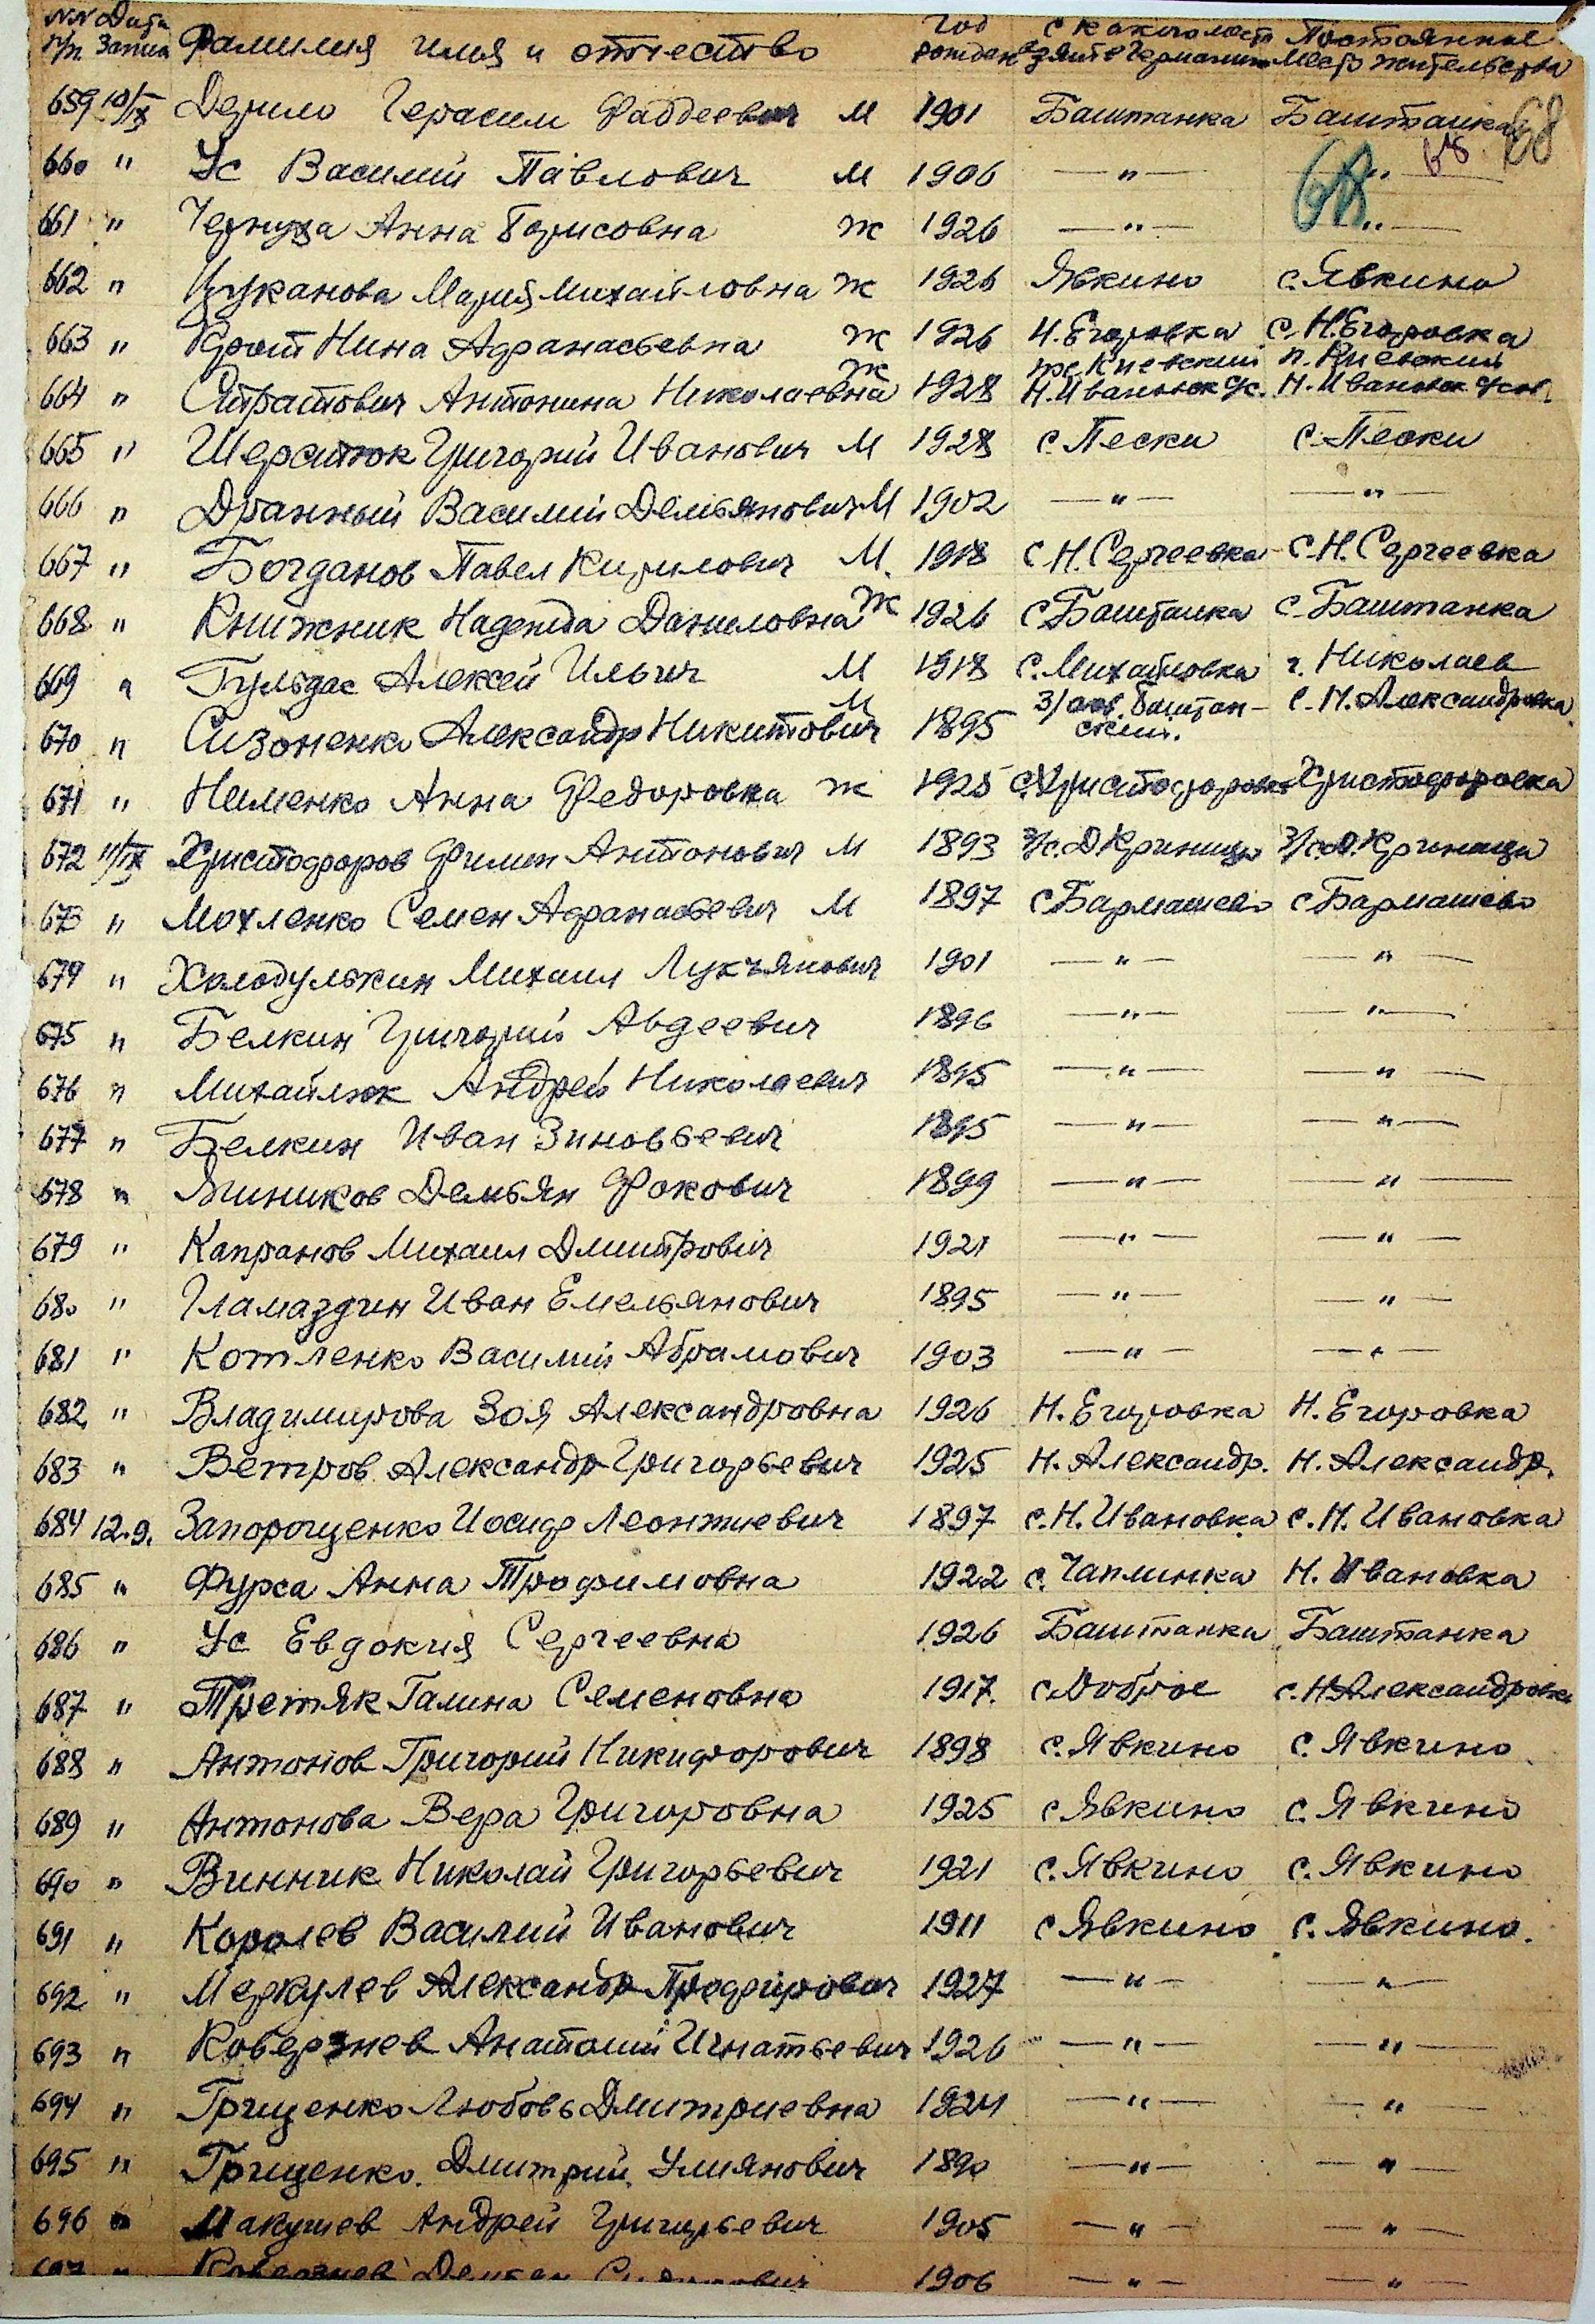 NN п/п Дата Записи Фамилия имя и отчество Год рожден С какого места взят в Германию Постоянное место жительства
659 10/IX Дерило Герасим Фаддеевич М 1901 Баштанка Баштанка 68
68 68
660 " Ус Василий Павлович М 1906 —"— —"—
661 " Чернуха Анна Борисовна Ж 1926 —"— —"—
662 " Цуканова Мария Михайловна Ж 1926 Явкино с. Явкино
663 " Крот Нина Афанасьевна Ж 1926 Н. Егоровка с. Н. Егоровка
664 " Стратович Антонина Николаевна Ж 1928 Киевский Н. Ивановск ус. п. Киевский Н. Ивановск
665 " Шерстюк Григорий Иванович М 1928 с. Пески с. Пески
666 " Дранный Василий Демьянович М 1902 —"— —"—
667 " Богданов Павел Кирилович М. 1918 с. Н. Сергеевка с. Н. Сергеевка
668 " Книжник Надежда Даниловна Ж 1926 с Баштанка с. Баштанка
669 " Гульдас Алексей Ильич М 1918 с. Михайловка г. Николаев
670 " Сизоненко Александр Никитович М 1895 Баштан- ский. с. Н. Александровка
671 " Нименко Анна Федоровна Ж 1925 с. Христофоровка Христофоровка
672 11/IX Христофоров Филип Антонович М 1893 з/с. Д Криница з/с. Д. Криница
673 " Мохленко Семен Афанасьевич М 1897 с Бармашево с Бармашево
674 " Холодулькин Михаил Лукъянович 1901 —"— —"—
675 " Белкин Григорий Авдеевич 1896 —"— —"—
676 " Михайлюк Андрей Николаевич 1895 —"— —"—
677 " Белкин Иван Зиновьевич 1895 —"— —"—
678 " Демьян Фокович 1899 —"— —"—
679 " Капранов Михаил Дмитрович 1921 —"— —"—
680 " Гламаздин Иван Емельянович 1895 —"— —"—
681 " Котленко Василий Абрамович 1903 —"— —"—
682 " Владимирова Зоя Александровна 1926 Н. Егоровка Н. Егоровка
683 " Ветров Александр Григорьевич 1925 Н. Александр. Н. Александр.
684 12.9. Запорощенко Иосиф Леонтиевич 1897 с. Н. Ивановка с. Н. Ивановка
685 " Фурса Анна Трофимовна 1922 с. Чаплинка Н. Ивановка
686 " Ус Евдокия Сергеевна 1926 Баштанка Баштанка
687 " Третяк Галина Семеновна 1917. с. Доброе с. Н Александровка
688 " Антонов Григорий Никифорович 1898 с. Явкино с. Явкино
689 " Антонова Вера Григоровна 1925 с Явкино с. Явкино
690 " Винник Николай Григорьевич 1921 с. Явкино с. Явкино
691 " Королев Василий Иванович 1911 с Явкино с. Явкино.
692 " Меркулев Александр 1927 —"— —"—
693 " Коверзнев Анатолий Игнатьевич 1926 —"— —"—
694 " Грищенко Любовь Дмитриевна 1924 —"— —"—
695 " Грищенко. Дмитрий Улиянович 1890 —"— —"—
696 " Макушев Андрей Григорьевич 1905 —"— —"—
697 " Коверзнев 1906 —"— —"—